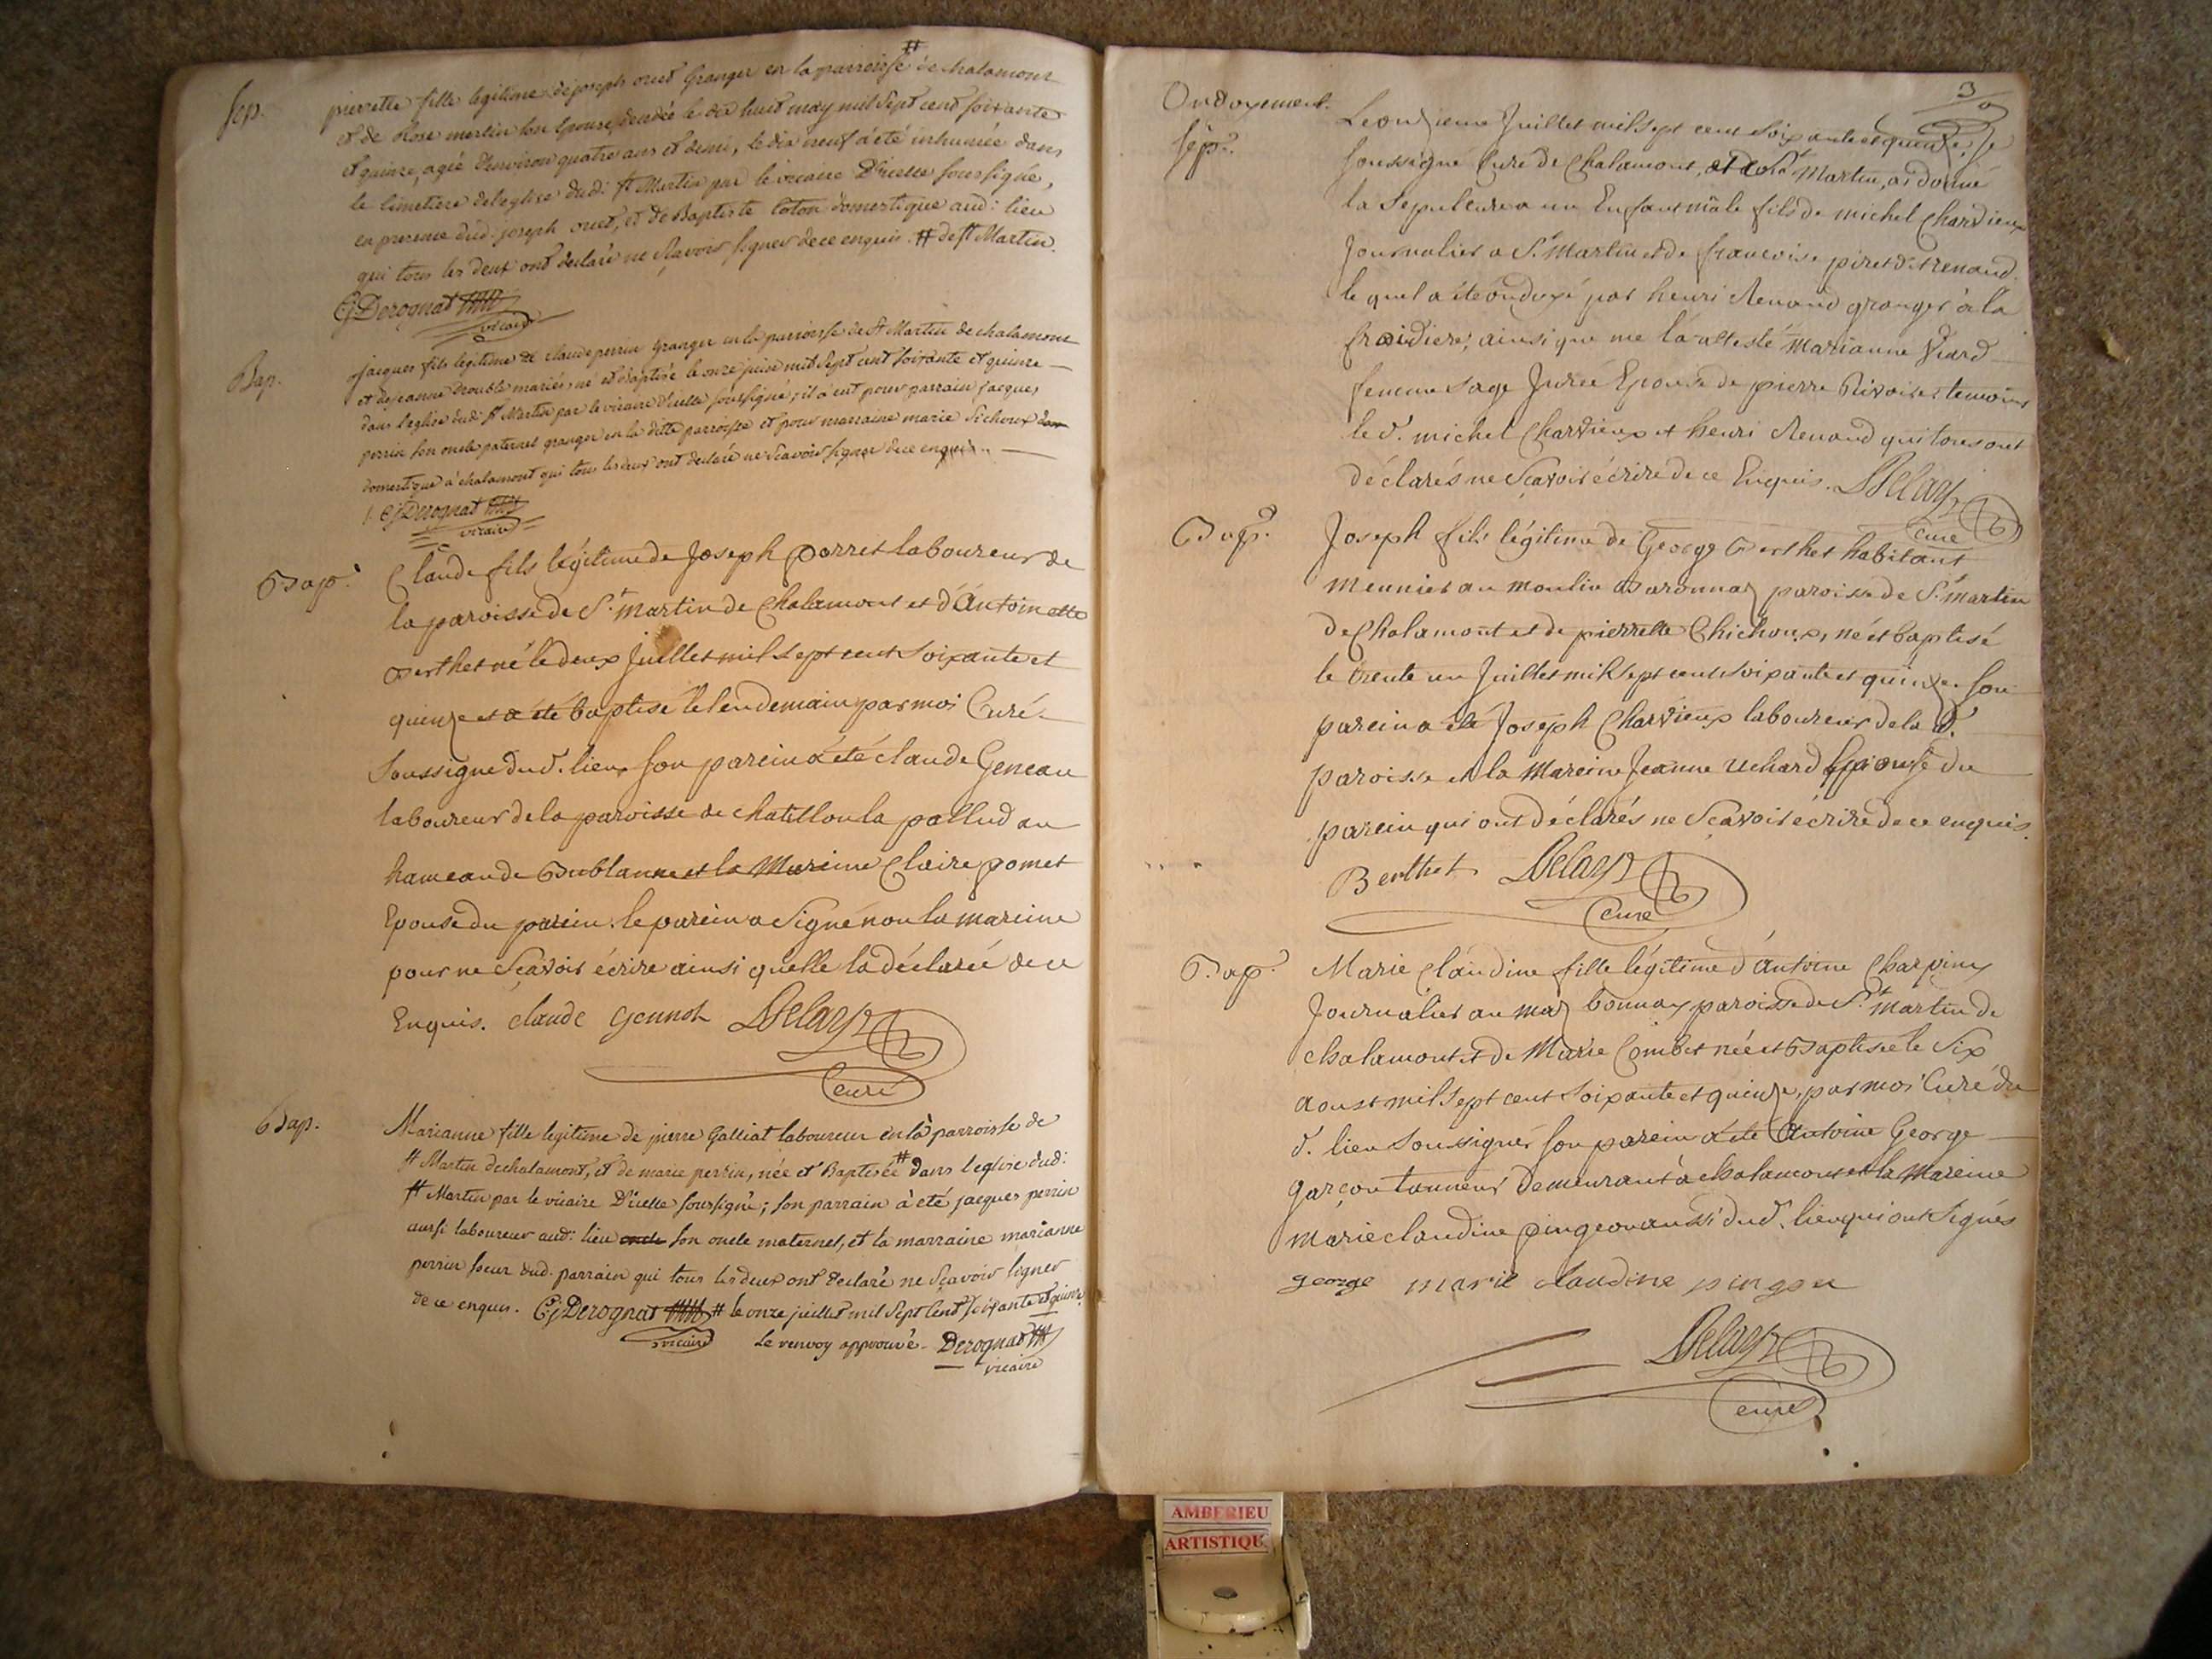 Sep.
pierrette fille legitime de joseph oret Granger en la parroisse # de chalamont
et de Rose merlin son Epouse, decedée le dix huit may mil sept cent soixante
et quinze, agée d'environ quatre ans et demi, le dix neuf a été inhumée dans
le cimetiere de l'eglise dud: st Martin par le vicaire d'icelle soussigné,
en presence dud: joseph oret, et de Baptiste loton domestique aud: lieu
qui tous les deux ont declaré ne sçavoir signer de ce enquis. # de st Martin.
Cj Derognat
vicaire
Bap.
jacques fils legitime de claude perrin Granger en la parroisse de st Martin de chalamont
et de jeanne Drouble mariés, né et baptisé le onze juin mil sept cent soixante et quinze
dans l'eglise dud: st Martin par le vicaire d'icelle soussigné; il a eut pour parrain jacques
perrin son oncle paternel granger en la dite parroisse et pour marraine marie Sichoux
domestique à chalamont qui tous les deux ont declaré ne sçavoir signer de ce enquis.
Cj Derognat
vicaire
Bap.
Claude fils légitime de Joseph porret laboureur de
la paroisse de St. martin de Chalamont et d'Antoinette
Berthet né le deux juillet mil sept cent soixante et
quinze et a été baptisé le lendemain par moi Curé
Soussigné du d. lieu, son parein a été claude Geneau
laboureur de la paroisse de chatillon la pallud au
hameau de Bublanne et la Mareine Claire gomet
Epouse du parein. le parein a signé non la mareine
pour ne sçavoir écrire ainsi quelle la déclaré de ce
Enquis. claude gennot Delay
Curé
Bap.
Marianne fille legitime de pierre Galliat laboureur en la parroisse de
st Martin de chalamont, et de marie perrin, née et Baptisée # dans l'eglise dud:
st Martin par le vicaire d'icelle soussigné; son parrain à eté jacques perrin
aussi laboureur aud: lieu son oncle maternel, et la marraine marianne
perrin soeur dud. parrain qui tous les deux ont declaré ne sçavoir signer
de ce enquis. Cj Derognat # le onze juillet mil sept cent soixante et quinze
vicaire Le renvoy approuvé. Derognat
vicaire
3
Ondoyement.
Sep.
Le onzieme Juillet mil sept cent soixante et quinze, je
soussigné Curé de Chalamont, et de St Martin, ai donné
la sepulture a un Enfant mâle fils de michel Charvieux
journalier a St. Martin et de francoise piret dit renaud
le quel a été ondoyé par henri Renaud granger à la
fraidiere, ainsi que me l'a attesté Marianne Viard
femme sage Jurée Epouse de pierre Rivoire; temoins
le d. michel Charvieux et henri Renaud qui tous ont
déclarés ne sçavoir écrire de ce Enquis. Delay
Curé
Bap.
Joseph fils légitime de George Berthet habitant
meunier au moulin Baronnas paroisse de St. martin
de Chalamont et de pierrette Chichoux, né et baptisé
le trente un Juillet mil sept cent soixante et quinze. son
parein a été Joseph Charvieux laboureur de la d.
paroisse et la Mareine Jeanne uchard Epouse du
parein qui ont déclarés ne sçavoir écrire de ce enquis.
Berthet Delay
Curé
Bap.
Marie Claudine fille légitime d'Antoine Charpiney
journalier au mas bonnay paroisse de St. martin de
chalamont et de Marie Combet née et Baptisée le six
aoust mil sept cent soixante et quinze, par moi Curé du
d. lieu soussigné, son parein a été Antoine George
garçon tanneur demeurant à chalamont et la Mareine
marie claudine pingeon aussi du d. lieu qui ont signés
george marie claudine pingon
Delay
Curé
AMBERIEU
ARTISTIQU